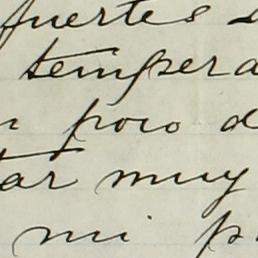 fuertes
tempera
poco d
tar muy
mi p